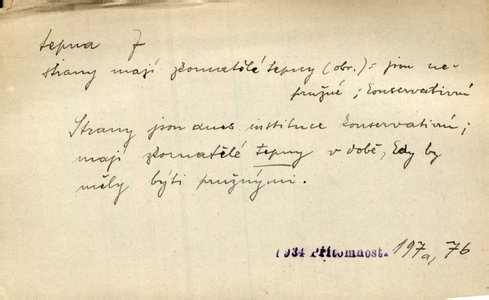 tepna 7
strany mají zkornatělé tepny (obr.) = jsou ne-
pružné ; konservativní
Strany jsou dnes instituce konservativní ;
mají zkornatělé tepny v době, kdy by
měly býti pružnými.
1934 Přítomnost. 197a, 76